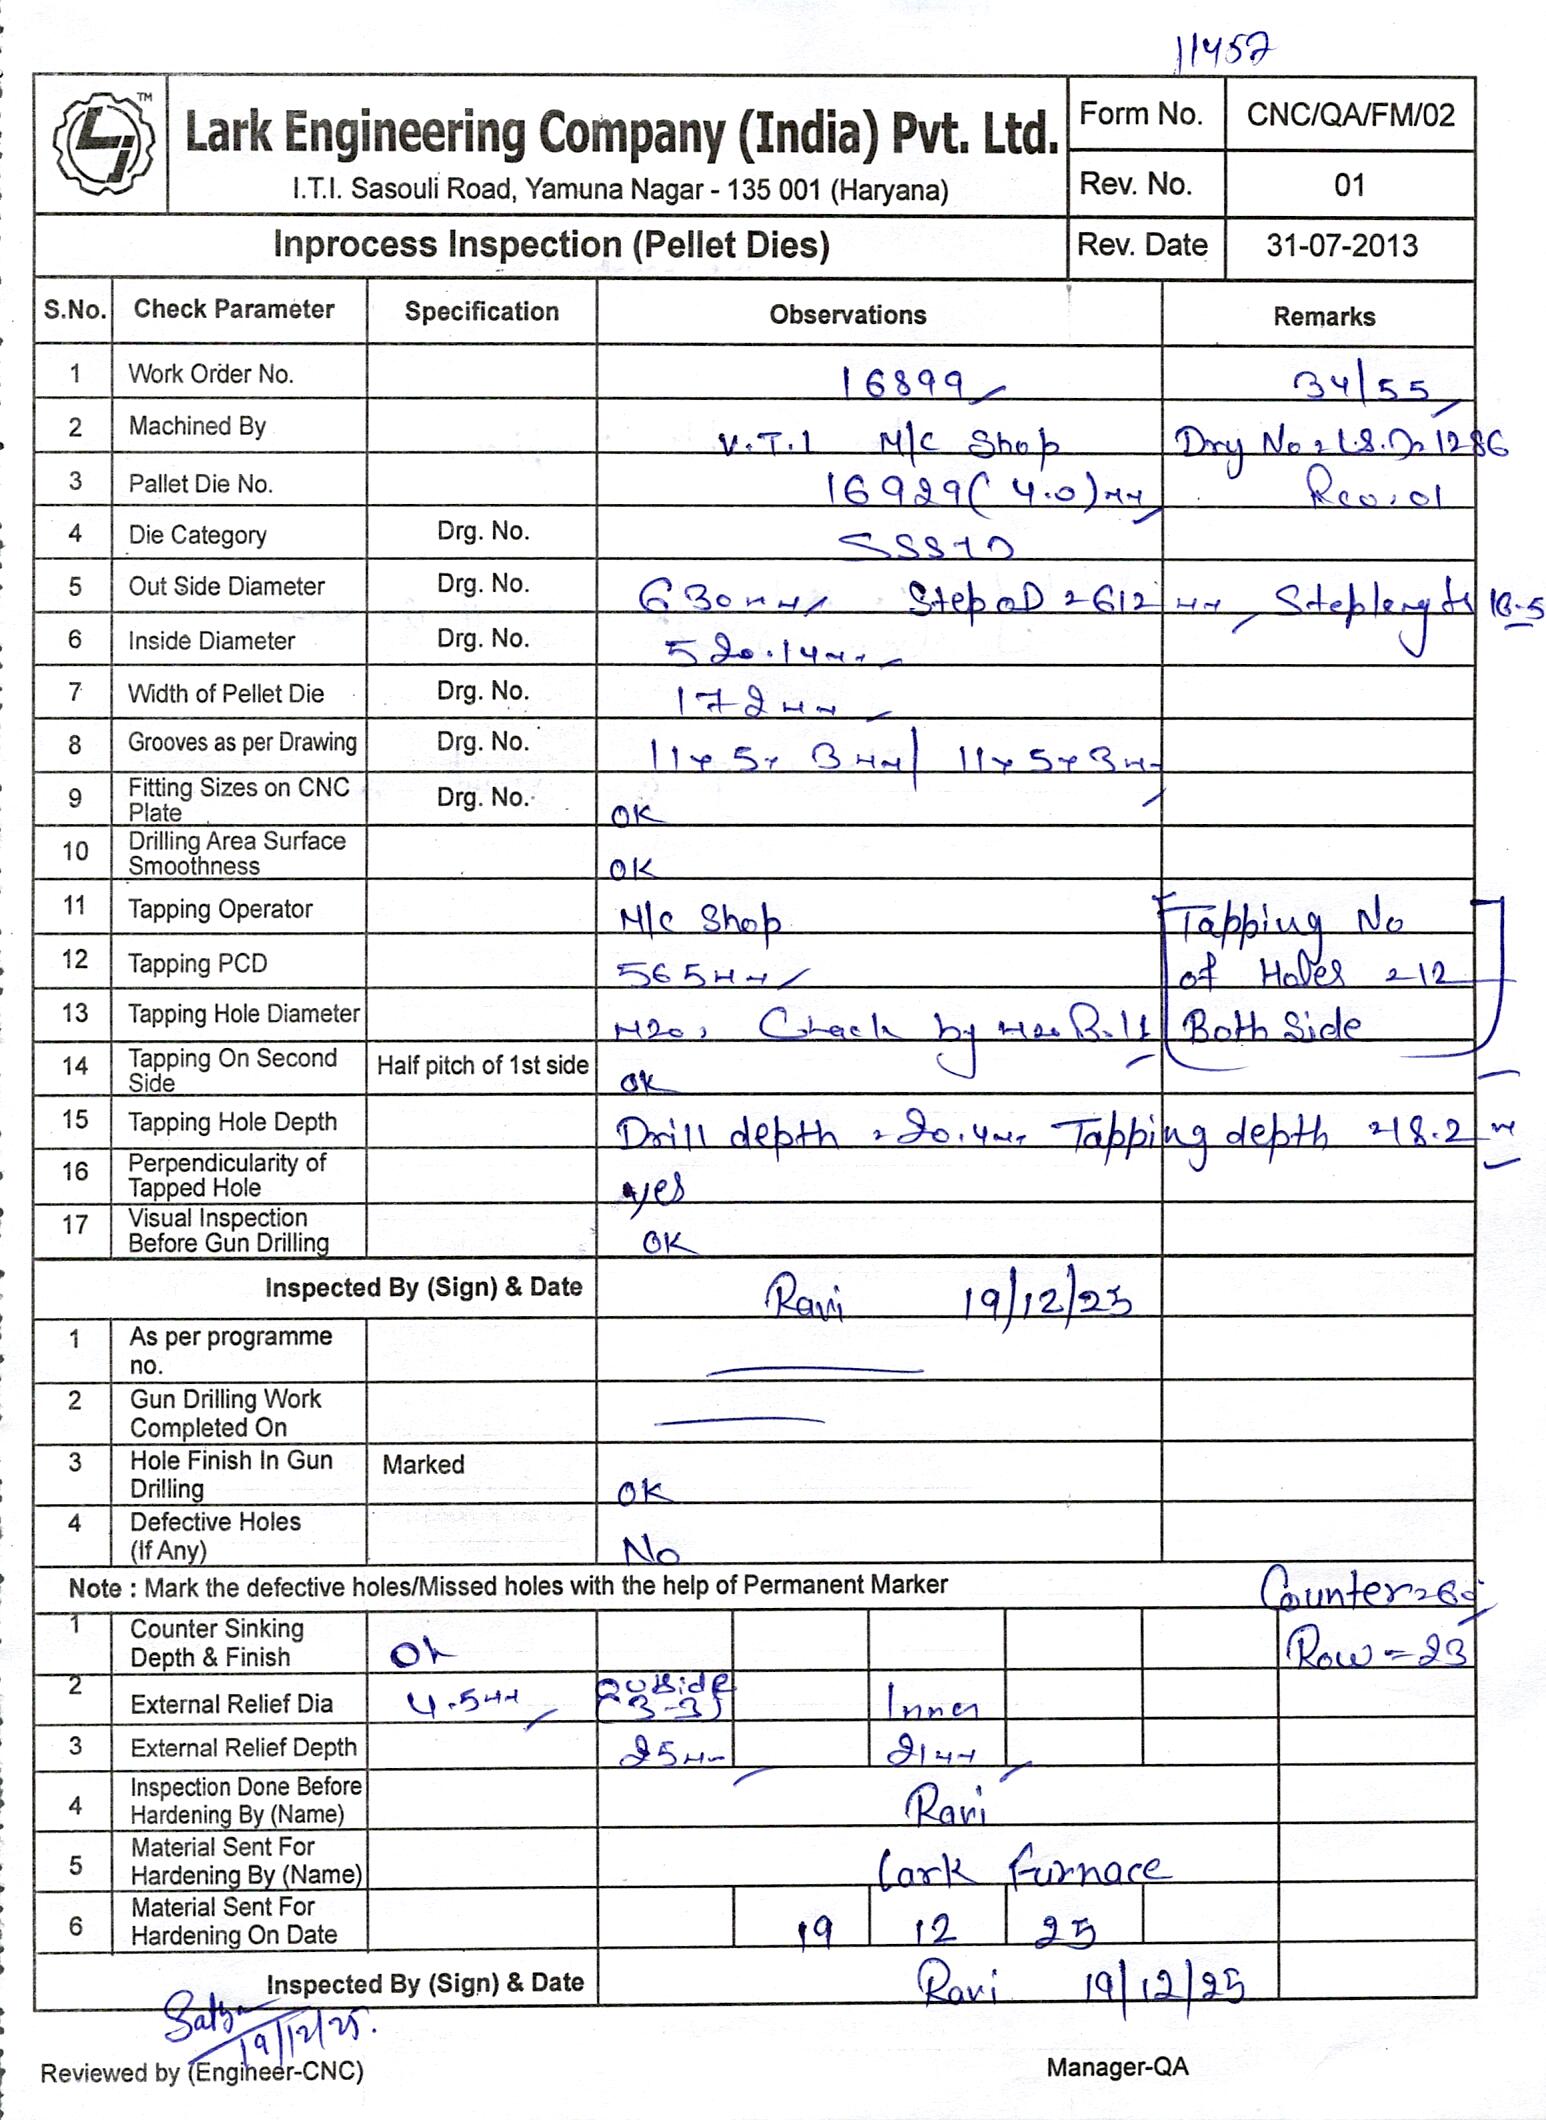 11457
TM
Lark Engineering Company (India) Pvt. Ltd.
I.T.I. Sasouli Road, Yamuna Nagar - 135 001 (Haryana)
Form No. CNC/QA/FM/02
Rev. No. 01
Inprocess Inspection (Pellet Dies) Rev. Date 31-07-2013
S.No. Check Parameter Specification Observations Remarks
1 Work Order No. 16899 34/55
2 Machined By V.T.L M/C Shop Drg No = 1286
3 Pallet Die No. 16929 (4.0) mm Rev: 01
4 Die Category Drg. No.
5 Out Side Diameter Drg. No. 630mm Step OD = 612 mm Step length
6 Inside Diameter Drg. No. 520.14mm
7 Width of Pellet Die Drg. No. 172mm
8 Grooves as per Drawing Drg. No. 11x5x3mm/ 11x5x3mm
9 Fitting Sizes on CNC Plate Drg. No. OK
10 Drilling Area Surface Smoothness OK
11 Tapping Operator M/C Shop Tapping No
12 Tapping PCD 565mm of Holes = 12
13 Tapping Hole Diameter M20, Check by M20 Bolt Both Side
14 Tapping On Second Side Half pitch of 1st side OK
15 Tapping Hole Depth Drill depth = 20.4mm Tapping depth = 18.2 mm
16 Perpendicularity of Tapped Hole yes
17 Visual Inspection Before Gun Drilling OK
Inspected By (Sign) & Date Ravi 19/12/25
1 As per programme no.
2 Gun Drilling Work Completed On
3 Hole Finish In Gun Drilling Marked OK
4 Defective Holes (If Any) No
Note : Mark the defective holes/Missed holes with the help of Permanent Marker Counter =
1 Counter Sinking Depth & Finish OK Row = 23
2 External Relief Dia 4.5mm Outside (3-3) Inner
3 External Relief Depth 25mm 21mm
4 Inspection Done Before Hardening By (Name) Ravi
5 Material Sent For Hardening By (Name) Lark Furnace
6 Material Sent For Hardening On Date 19 12 25
Inspected By (Sign) & Date Ravi 19/12/25
19/12/25.
Reviewed by (Engineer-CNC) Manager-QA